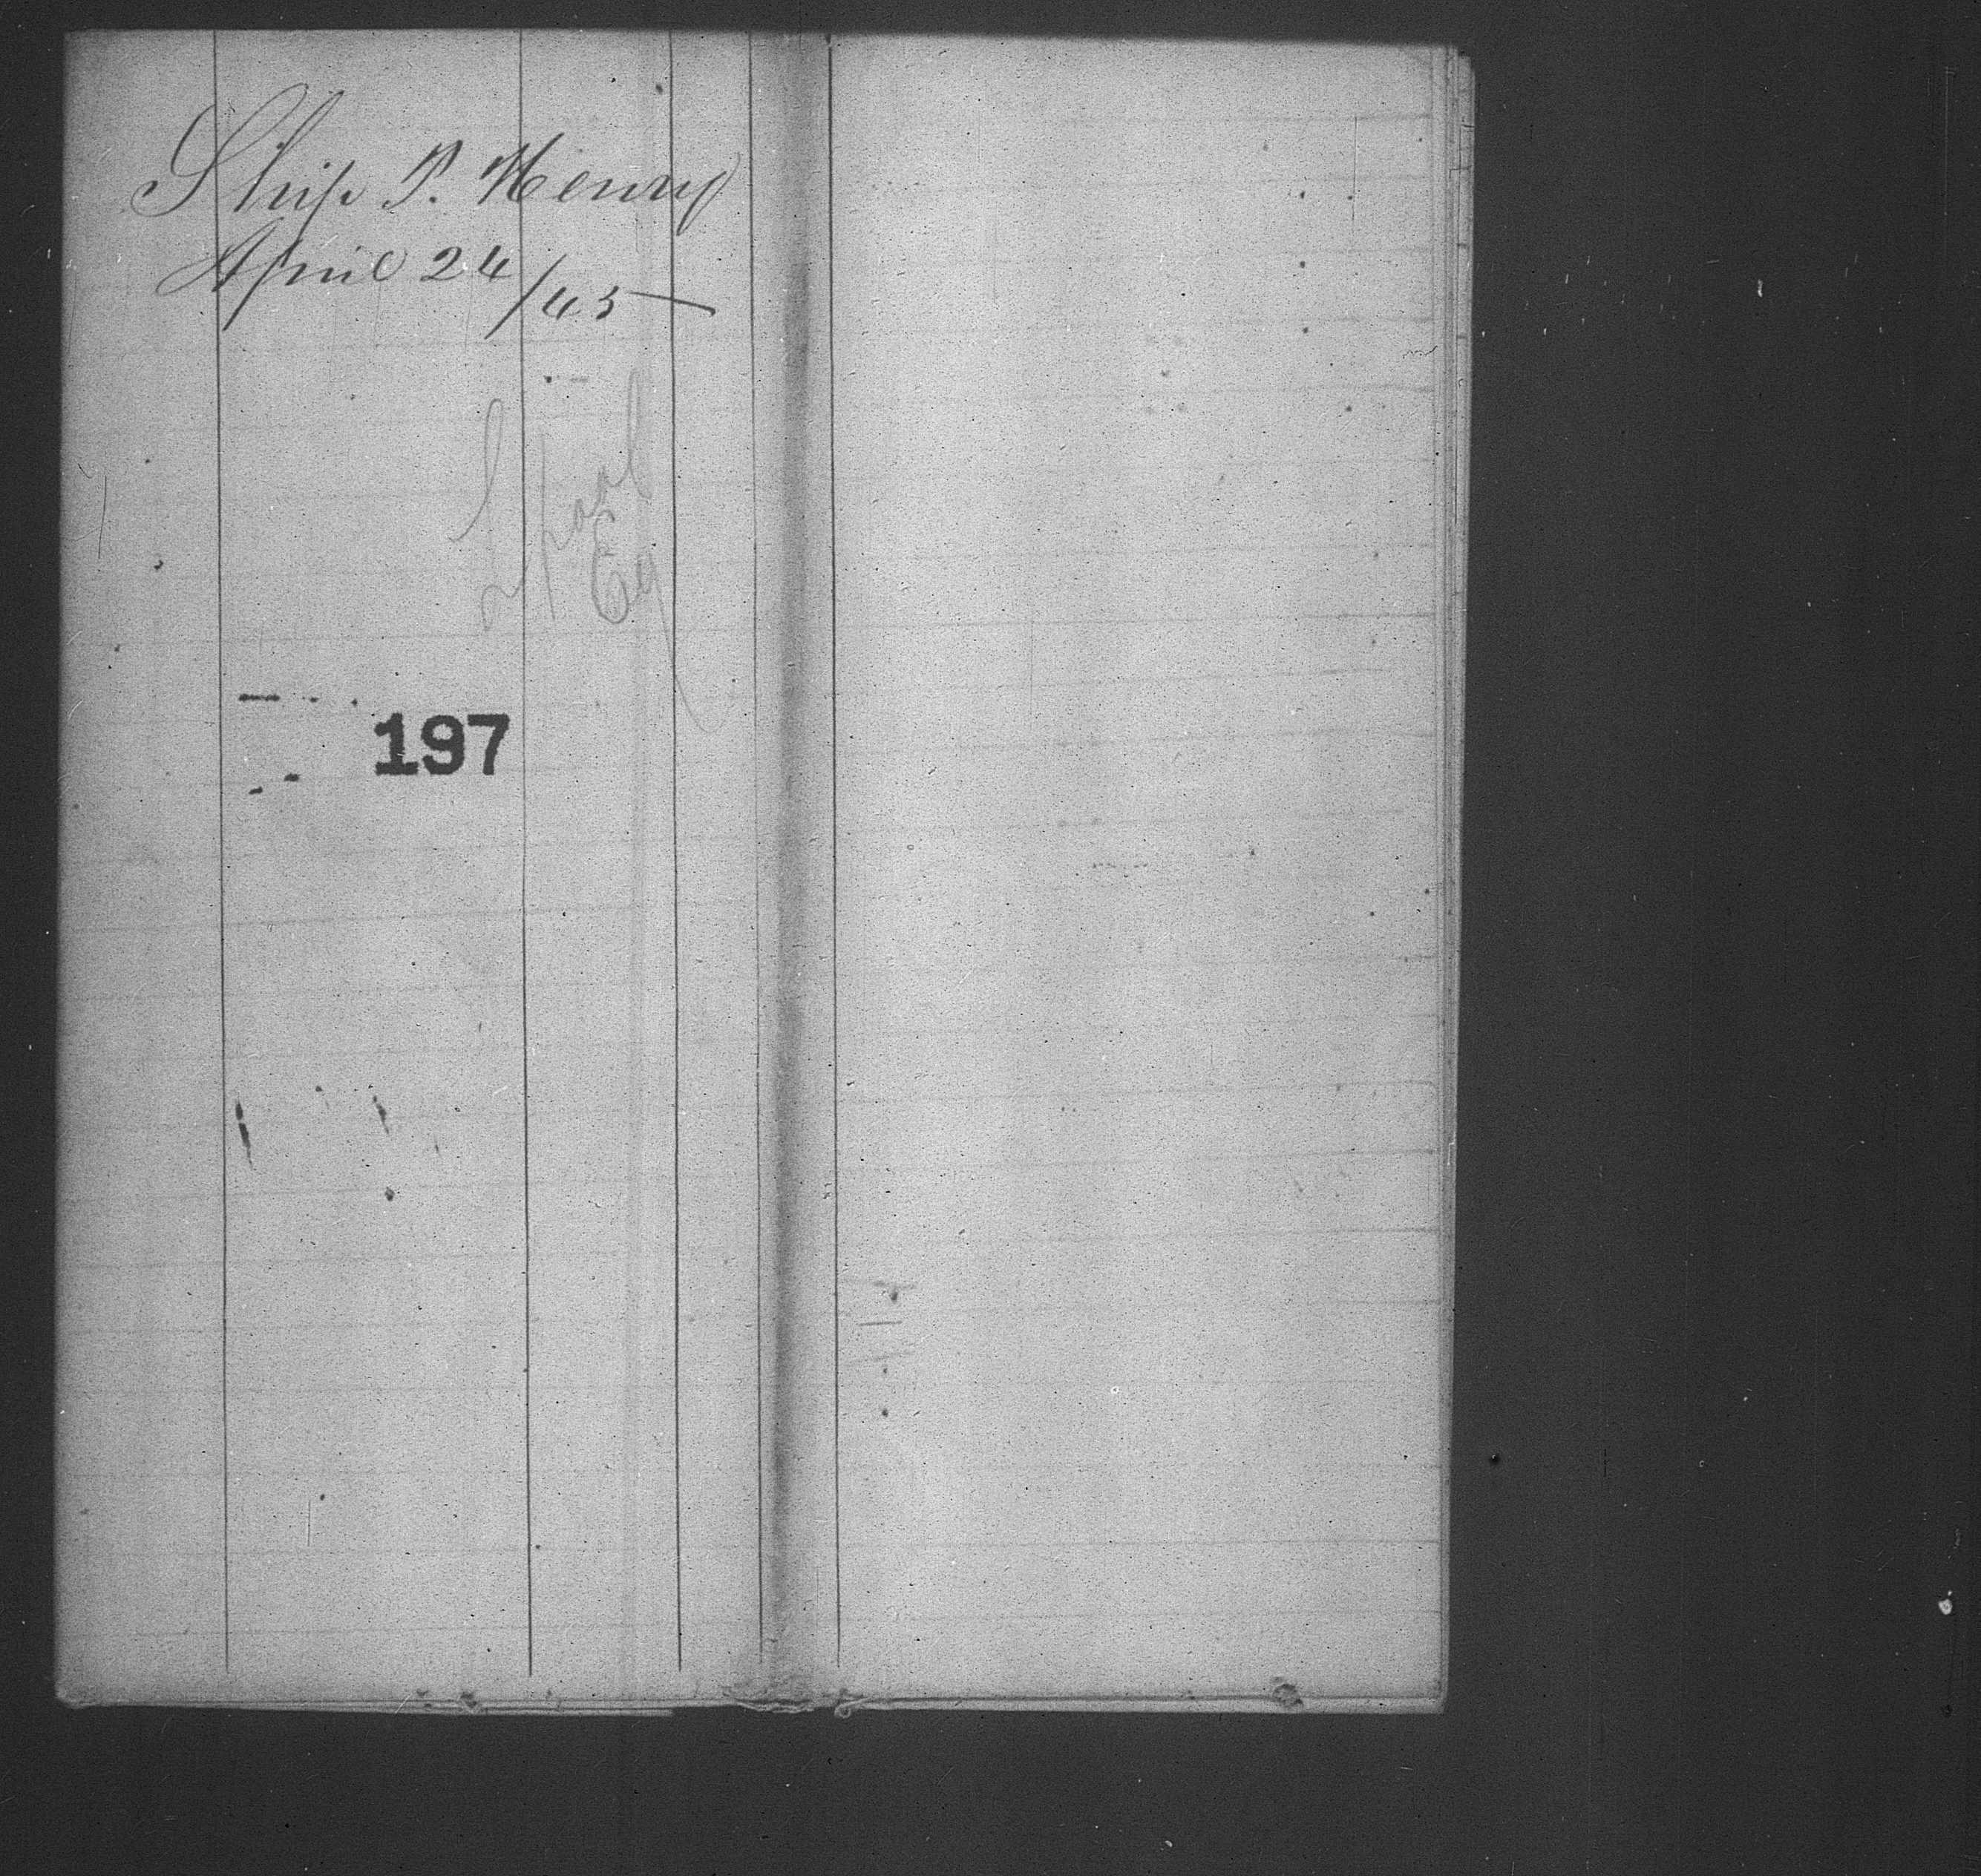 Ship P. Henry
April 24/45
Lpool
197